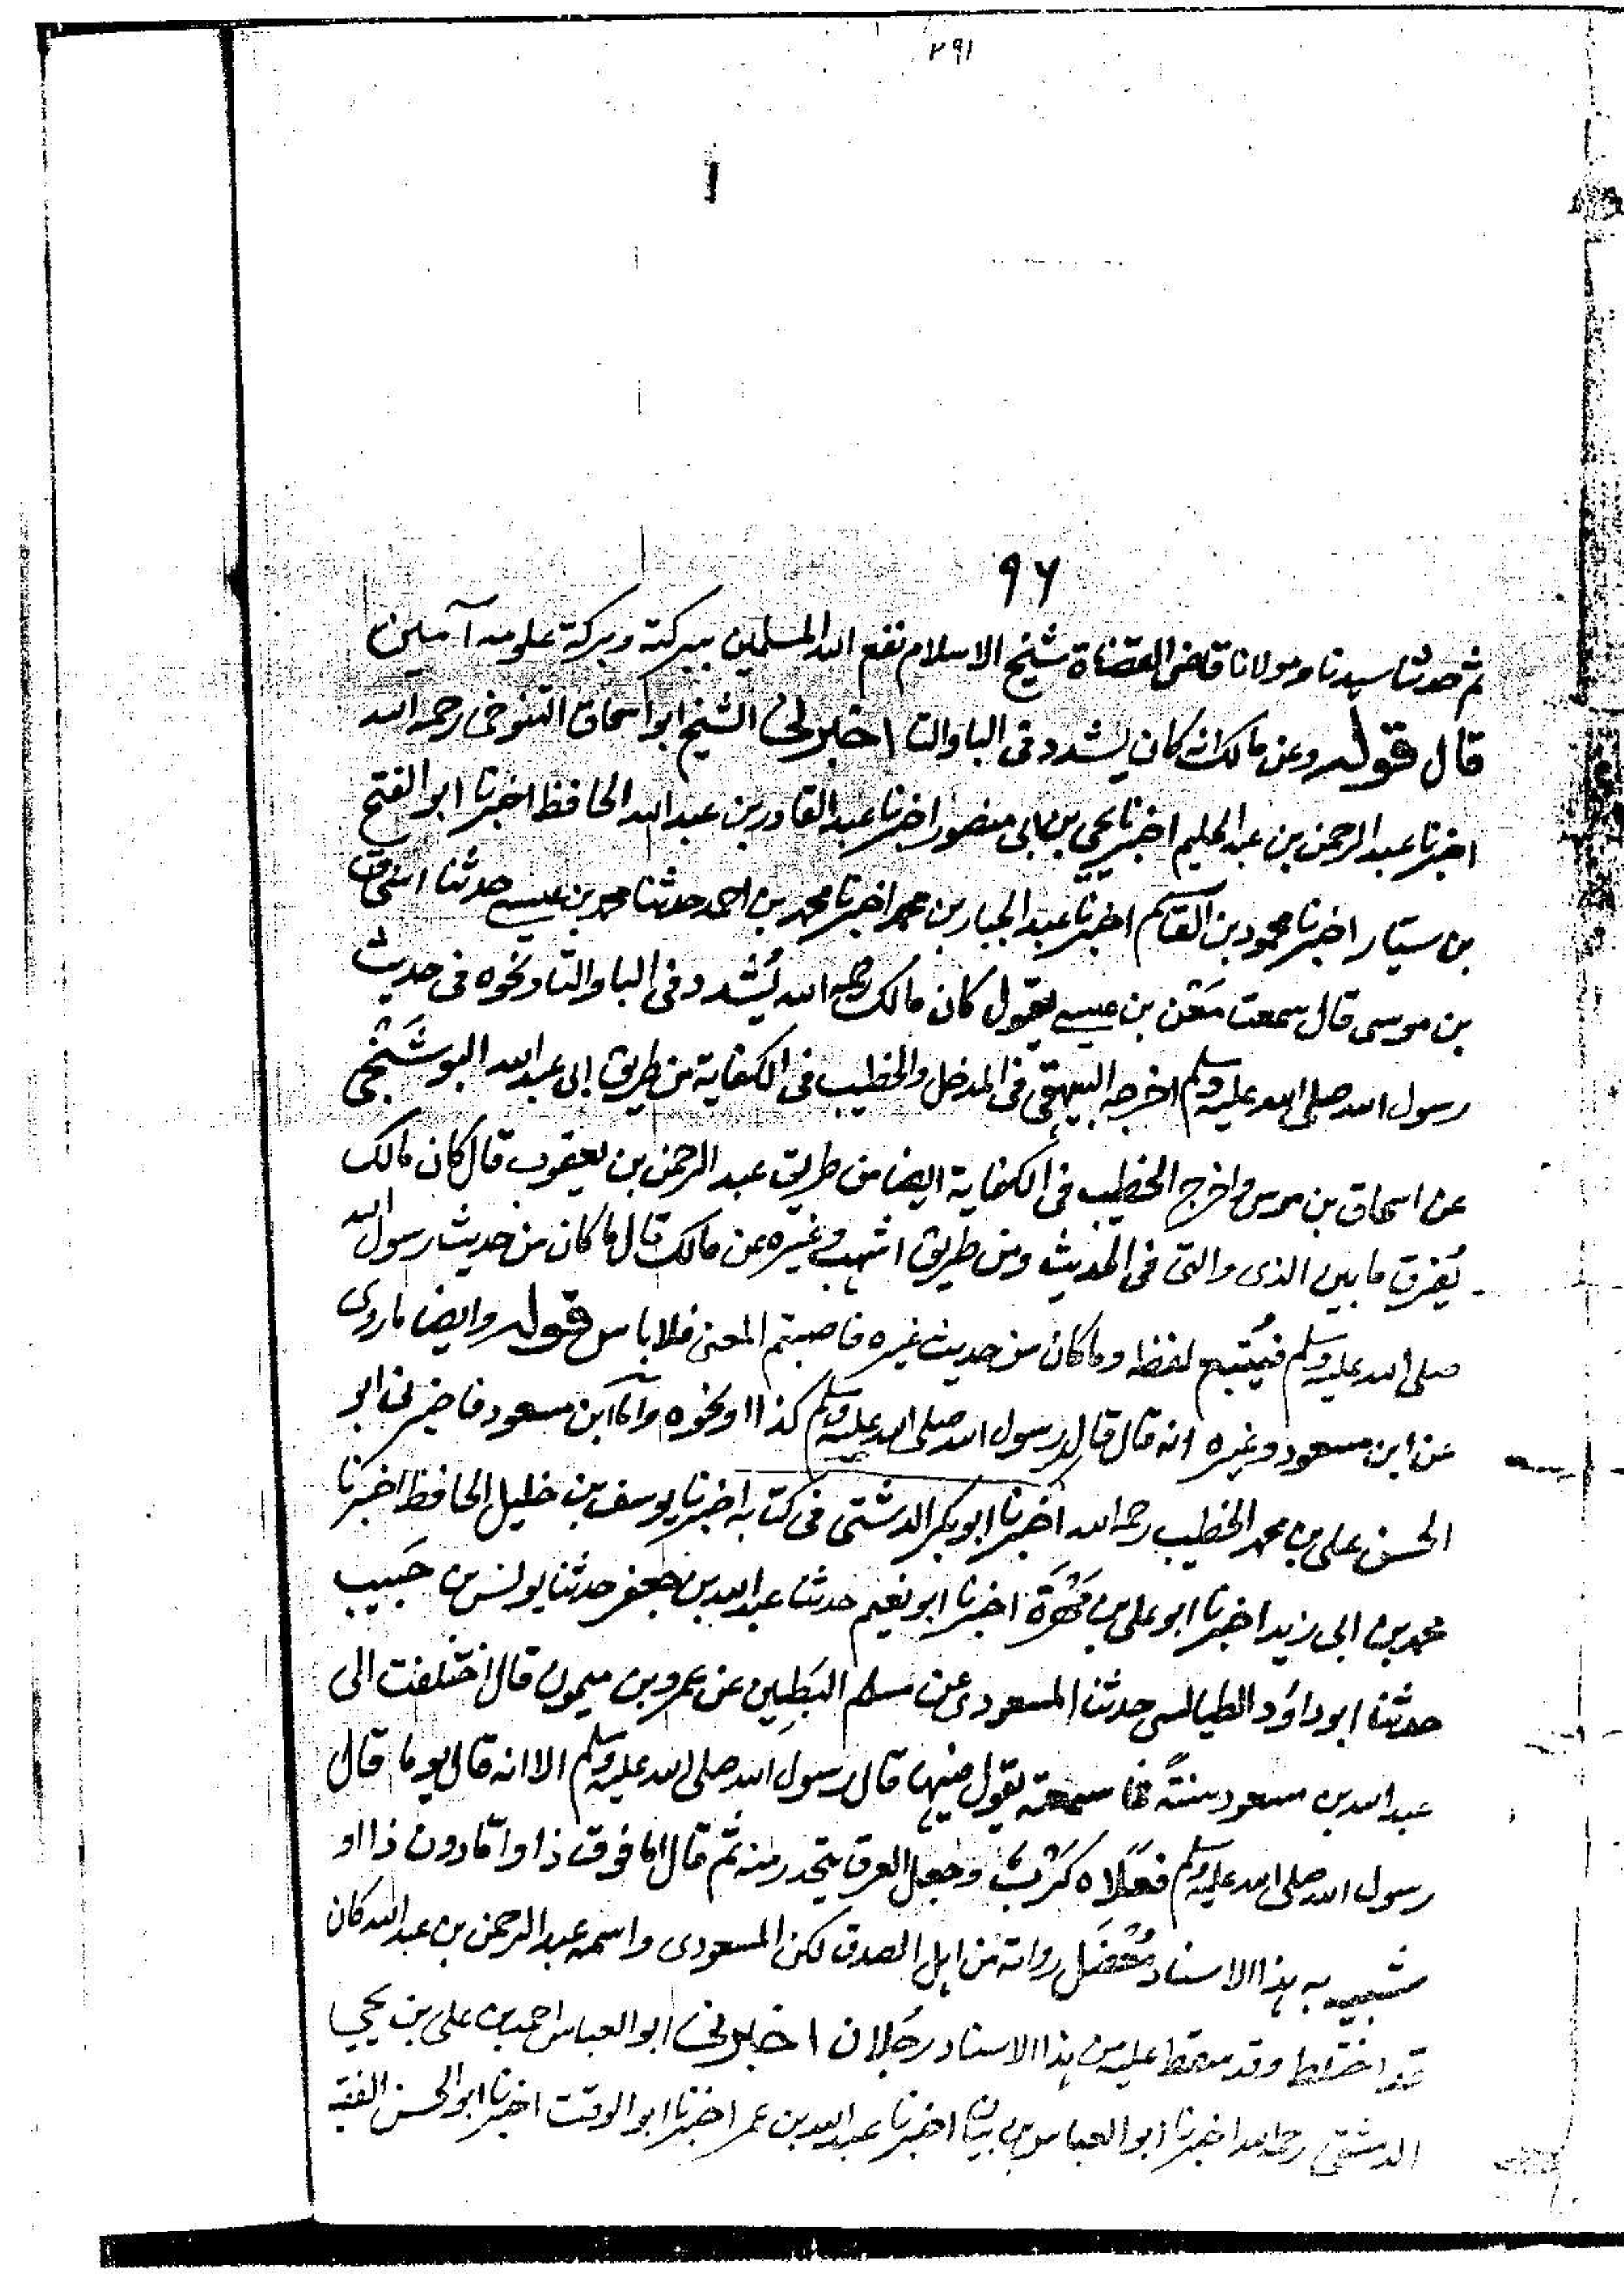 ٢٩١
٩٦
ثم حدثنا سيدنا ومولانا قاضى القضاة شيخ الاسلام نفع الله المسلمين ببركته وبركة علومه آمين
قال قوله وعن مالك انه كان يشدد فى الباء والتا اخبرنى الشيخ ابو اسحاق التنوخى رحمه الله
اخبرنا عبد الرحمن بن عبد الحليم اخبرنا يحيي بن ابى منصور اخبرنا عبد القادر بن عبد الله الحافظ اخبرنا ابو الفتح
بن سيّار اخبرنا محمود بن القاسم اخبرنا عبد الجبار بن محمد اخبرنا محمد بن احمد حدثنا محمد بن عيسى حدثنا اسحاق
بن موسى قال سمعت مَعْن بن عيسى يقول كان مالك رحمه الله يُشدد فى البا والتا ونحوه فى حديث
رسول الله صلى الله عليه وسلم اخرجه البيهقى فى المدخل والخطيب فى الكفاية من طريق ابى عبد الله البوشَنْجى
عن اسحاق بن موسى واخرج الخطيب فى الكفاية ايضا من طريق عبد الرحمن بن يعقوب قال كان مالك
يُفرق ما بين الذى والتى فى الحديث ومن طريق اشهب وغيره عن مالك قال ما كان من حديث رسول الله
صلى الله عليه وسلم فيُتبع لفظه وما كان من حديث غيره فاصبتم المعنى فلا باس قوله وايضا ما روى
عن ابن مسعود وغيره انه قال قال رسول الله صلى الله عليه وسلم كذا او نحوه واما ابن مسعود فاخبرنى ابو
الحسن على بن محمد الخطيب رحمه الله اخبرنا ابو بكر الدشتى فى كتابه اخبرنا يوسف بن خليل الحافظ اخبرنا
محمد بن ابى زيد اخبرنا ابو على بن مَهْرَة اخبرنا ابو نعيم حدثنا عبد الله بن جعفر حدثنا يونس بن حَبيب
حدثنا ابو داؤد الطيالسى حدثنا المسعودى عن مسلم البَطِين عن عمرو بن ميمون قال اختلفت الى
عبد الله بن مسعود سنةً فما سمعته يقول فيها قال رسول الله صلى الله عليه وسلم الا انه قال يوما قال
رسول الله صلى الله عليه وسلم فعَلَاه كَرْبٌ وجعل العرق يتحدر منه ثم قال اما فوق ذا واما دون ذا او
شبيه به هذا الاسناد رواته من اهل الصدق لكن المسعودى واسمه عبد الرحمن بن عبد الله كان
قد اختلط وقد سقط عليه من هذا الاسناد رجلان اخبرنى ابو العباس احمد بن على بن يحيي
الدمشقى رحمه الله اخبرنا ابو العباس بن بيان اخبرنا عبد الله بن عمر اخبرنا ابو الوقت اخبرنا ابو الحسن الفقيه